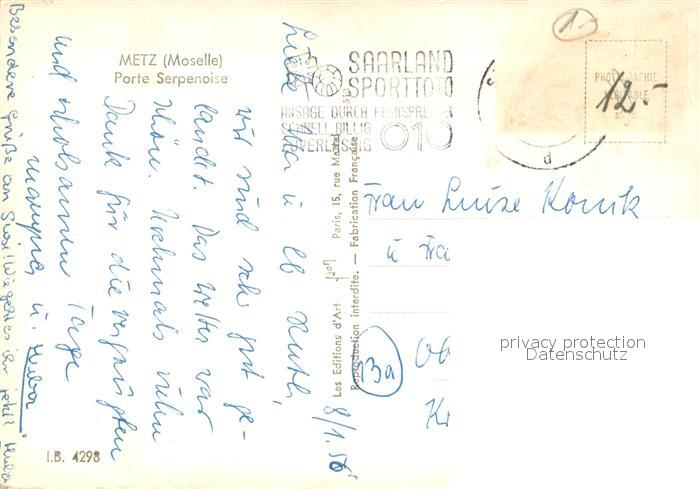 METZ (Moselle)
Porte Serpenoise
SAARLAND
SPORTTOTO
ANSAGE DURCH FERNSPRECHER
SCHNELL BILLIG
ZUVERLÄSSIG 010
PHOTOGRAPHIE
VÉRITABLE
1-
12.-
8/1.56
Liebe u. lb Ruth,
wir sind sehr gut ge-
landet. Das Wetter war
schön. Nochmals vielen
Dank für die vergnügten
und erholsamen Tage
u. Huba
Besondere Grüße an Susi! Wie geht es ihr jetzt? Huba
Les Editions d'Art Paris, 15, rue Martel
Reproduction interdite. — Fabrication Française
Frau Luise Konik
u Fra
13a
Ob
Kr
I.B. 4298
privacy protection
Datenschutz